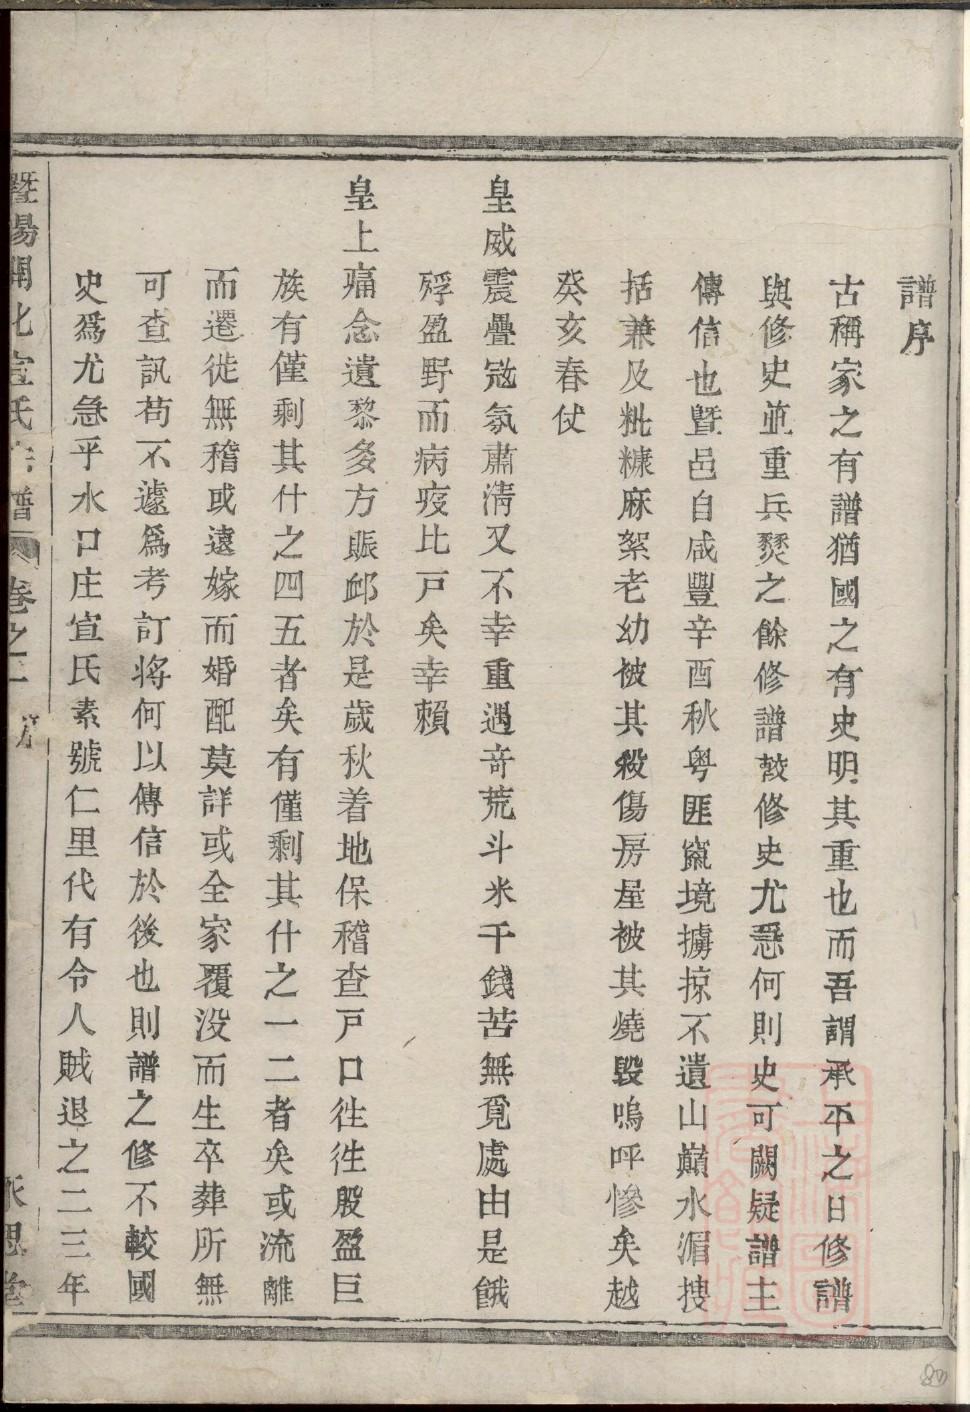 譜序
古稱家之有譜猶國之有史明其重也而吾謂承平之日修譜
與修史並重兵燹之餘修譜較修史尤急何則史可闕疑譜主
傳信也曁邑自咸豐辛酉秋粤匪竄境擄掠不遺山巔水湄搜
括兼及粃糠麻絮老幼被其殺傷房屋被其燒毀嗚呼慘矣越
癸亥春仗
皇威震疊冦氛肅淸又不幸重遇竒荒斗米千錢苦無覓處由是餓
殍盈野而病疫比戸矣幸賴
皇上痛念遺黎多方賑卹於是歲秋着地保稽查戸口徃徃殷盈巨
族有僅剩其什之四五者矣有僅剩其什之一二者矣或流離
而遷徙無稽或遠嫁而婚配莫詳或全家覆没而生卒葬所無
可查訊苟不遽爲考訂将何以傳信於後也則譜之修不較國
史爲尤急乎水口庄宣氏素號仁里代有令人賊退之二三年
曁陽開化宣氏宗譜 卷之 永思堂